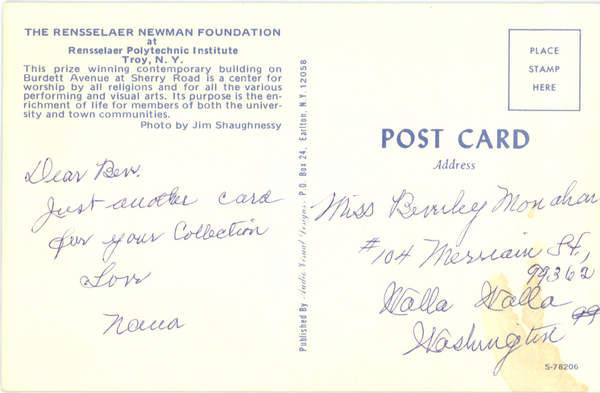 THE RENSSELAER NEWMAN FOUNDATION
at
Rensselaer Polytechnic Institute
Troy, N. Y.
This prize winning contemporary building on
Burdett Avenue at Sherry Road is a center for
worship by all religions and for all the various
performing and visual arts. Its purpose is the en-
richment of life for members of both the univer-
sity and town communities.
Photo by Jim Shaughnessy
Dear Bev.
Just another card
for your Collection
Love
Nana
Published By Audio Visual Designs P.O. Box 24, Earlton, N.Y. 12058
PLACE
STAMP
HERE
POST CARD
Address
Miss Beverley Monahan
#104 Merriam St.,
99362
Walla Walla
Washington 99
S-78206